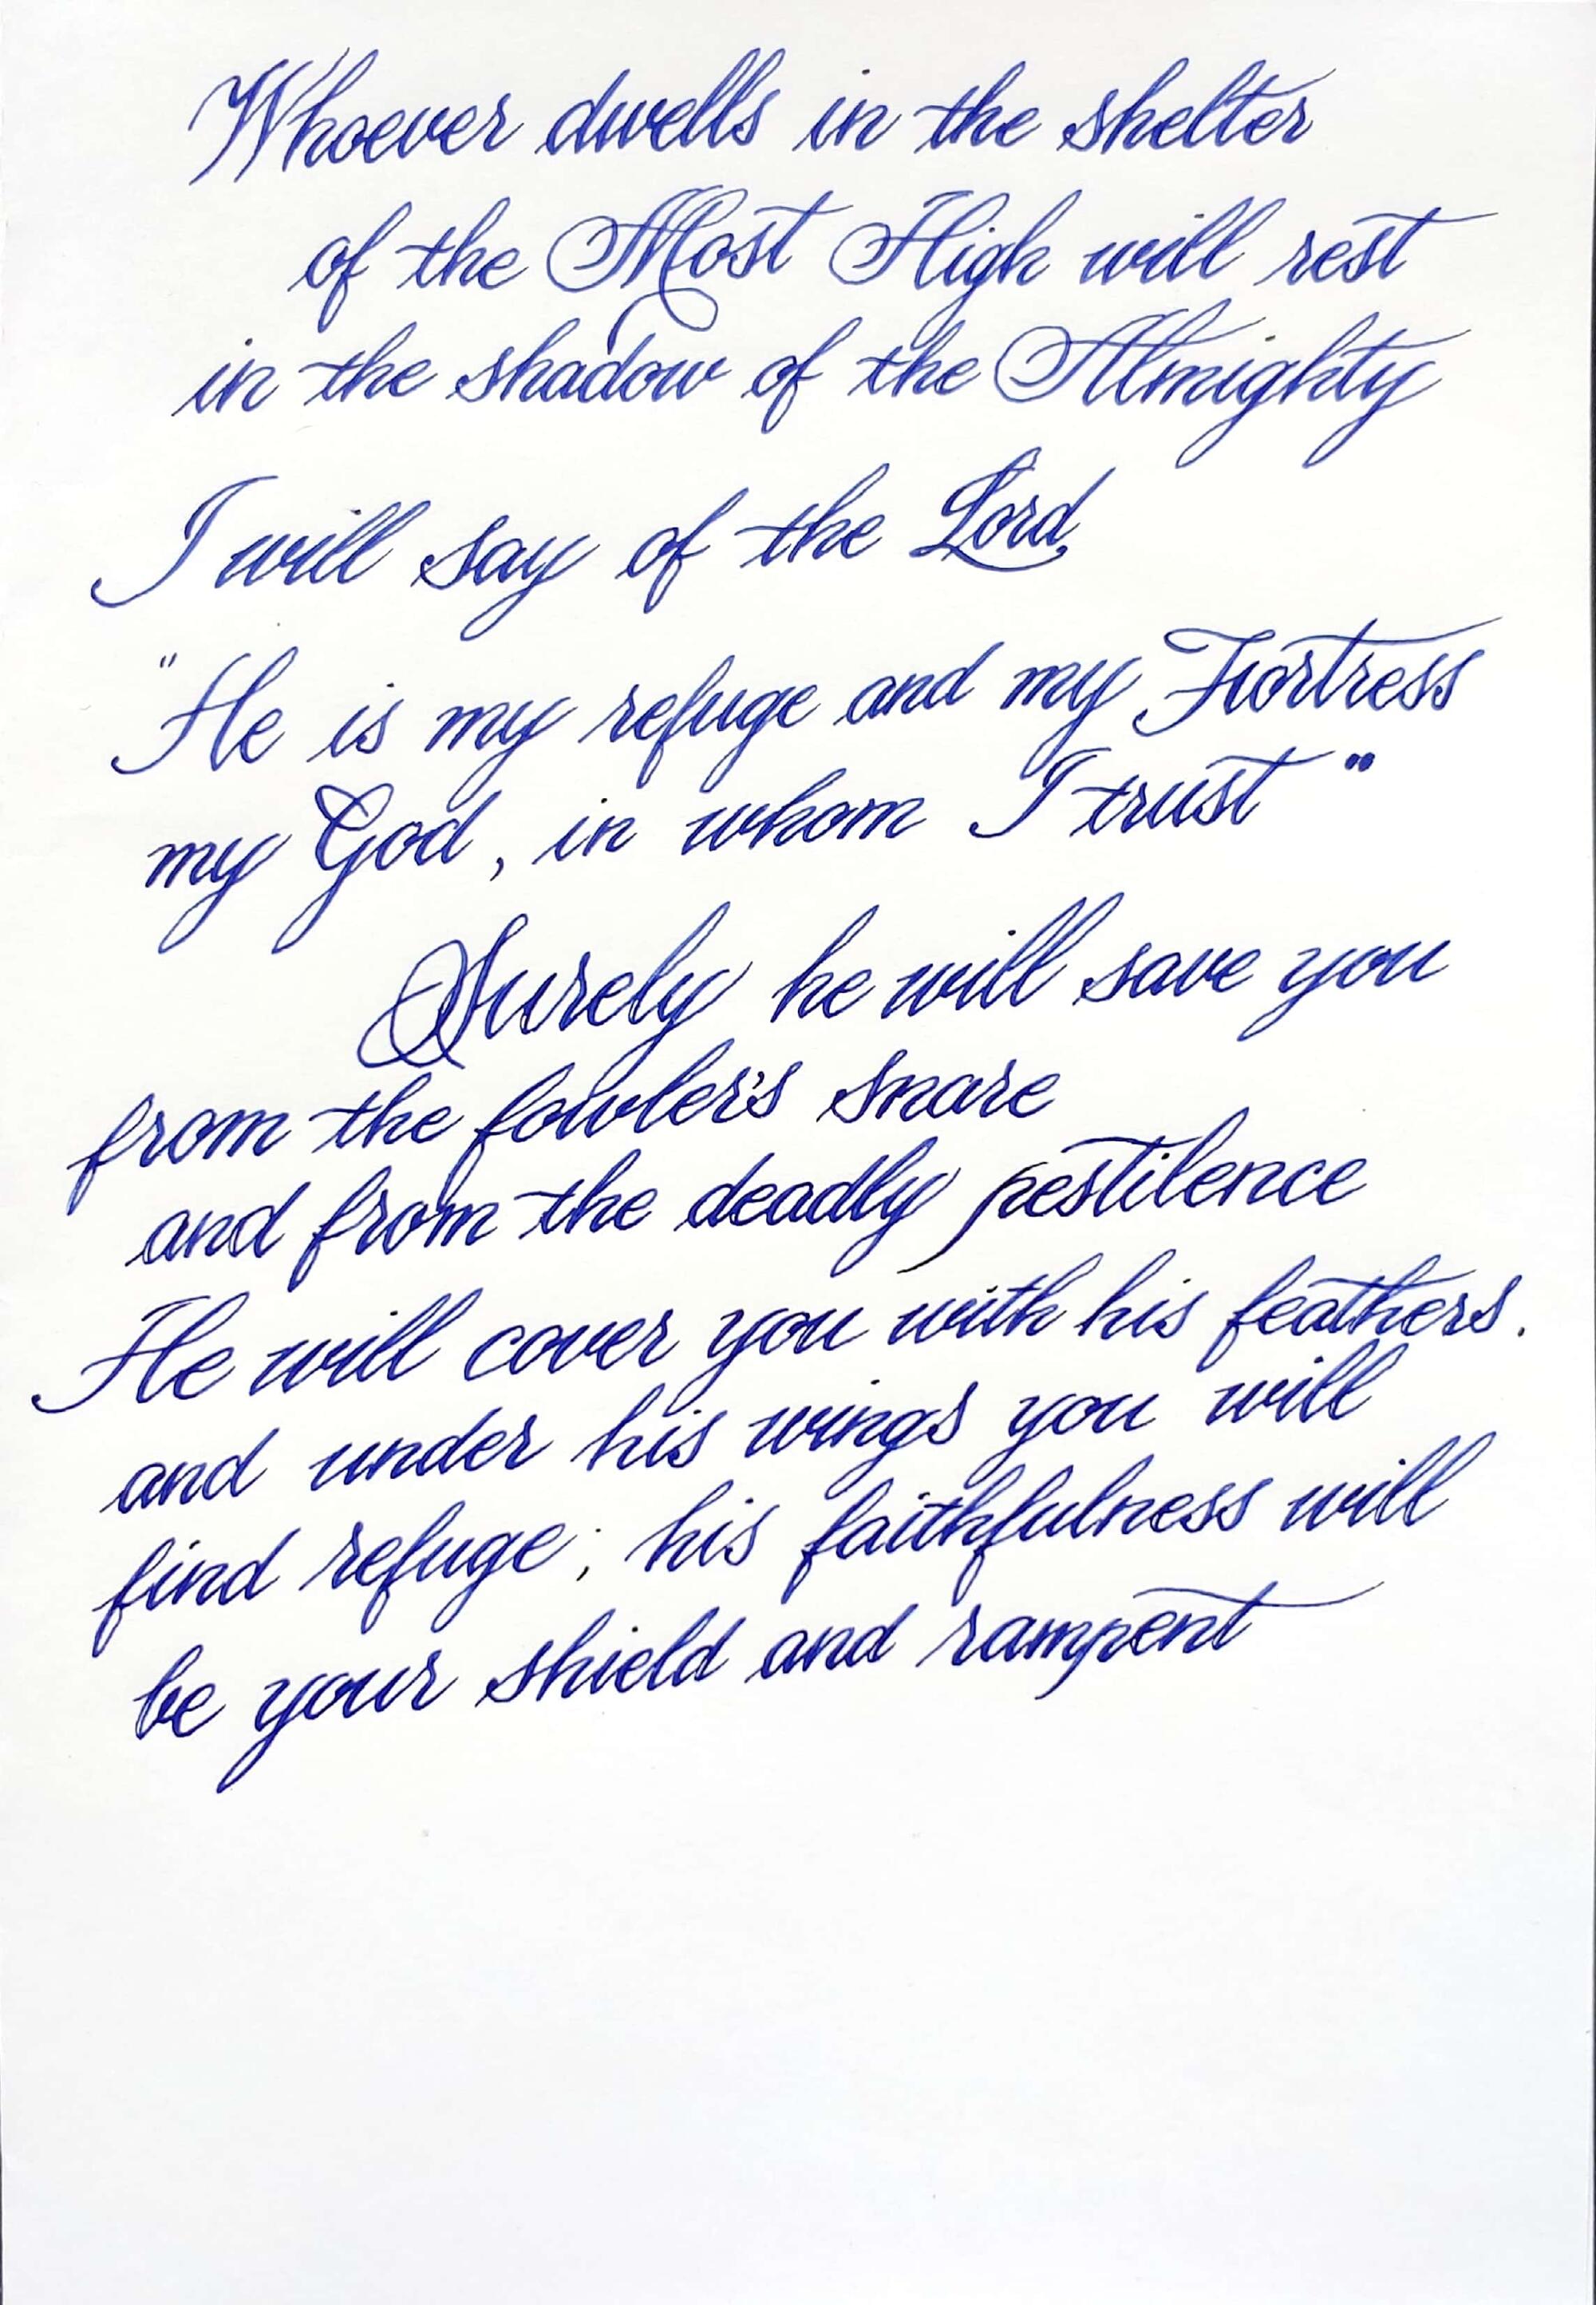 Whoever dwells in the shelter
of the Most High will rest
in the shadow of the Almighty
I will say of the Lord,
"He is my refuge and my Fortress
my God, in whom I trust"
Surely he will save you
from the fowler's snare
and from the deadly pestilence
He will cover you with his feathers.
and under his wings you will
find refuge; his faithfulness will
be your shield and rampent